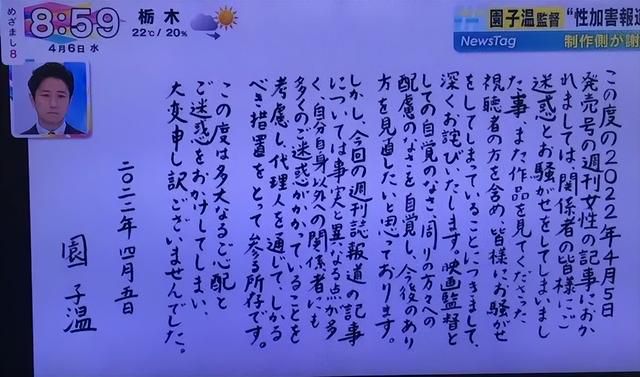 めざまし8
8:59
4月6日 水
栃木
22℃/20%
園子温監督 "性加害報道
NewsTag
制作側が謝
この度の2022年4月5日
発売号の週刊女性の記事におか
れましては、関係者の皆様にご
迷惑とお騒がせをしてしまいまし
た事、また作品を見てくださった
視聴者の方を含め、皆様にお騒がせ
をしてしまっていることにつきまして、
深くお詫びいたします。映画監督と
しての自覚のなさ、周りの方々への
配慮のなさを自覚し、今後のあり
方を見直したいと思っております。
しかし、今回の週刊誌報道の記事
については事実と異なる点が多
く、自分自身以外への関係者にも
多くのご迷惑がかかっていることを
考慮し、代理人を通じて、しかる
べき措置をとって参る所存です。
この度は多大なるご心配と
ご迷惑をおかけしてしまい、
大変申し訳ございませんでした。
二〇二二年四月五日
園子温